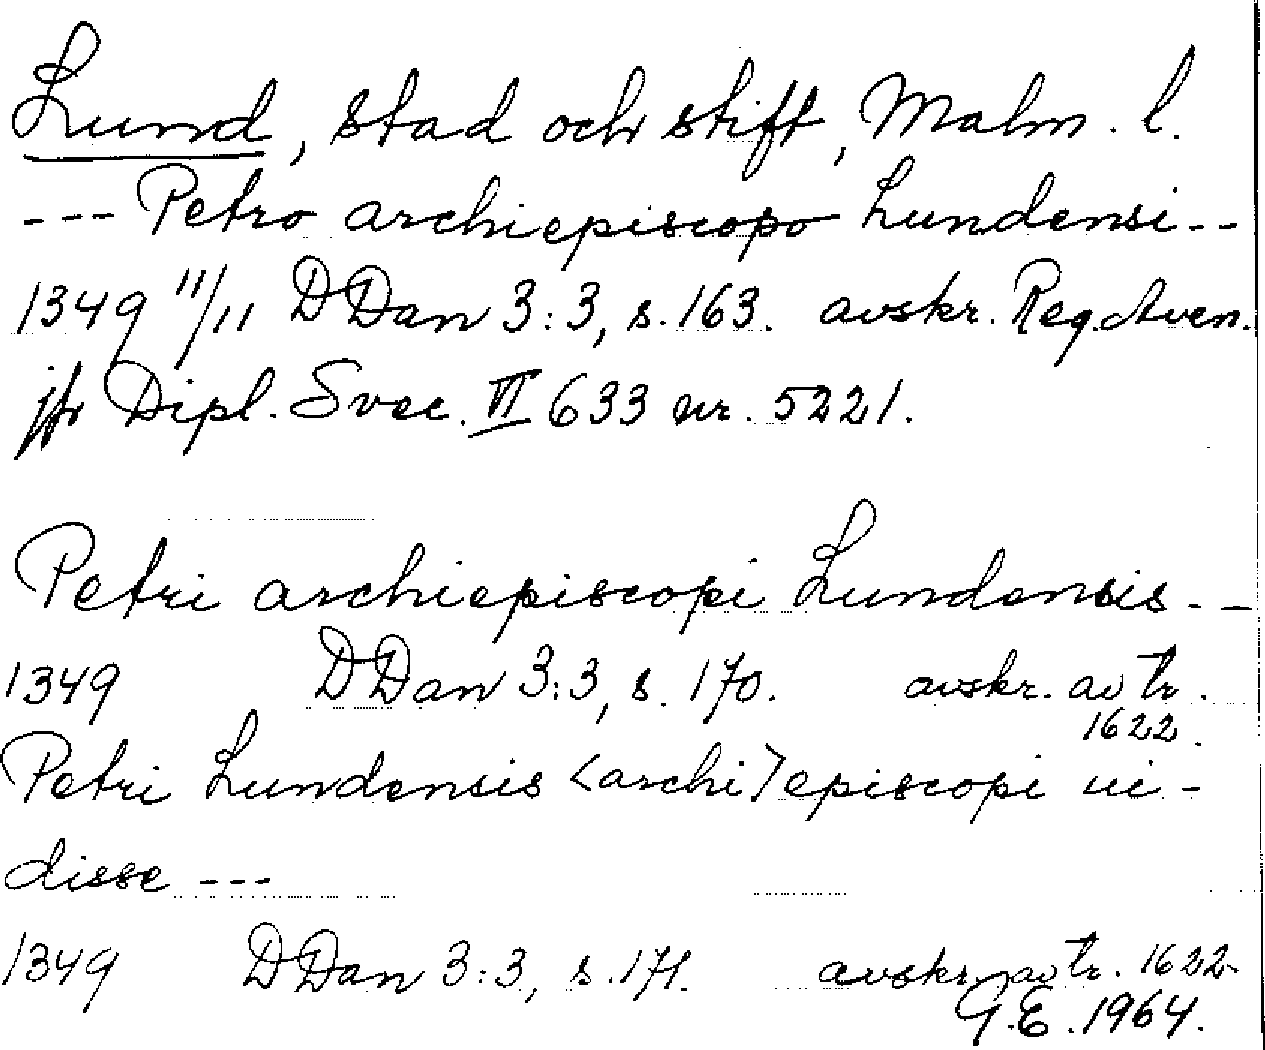 Lund, stad och stift, Malm. l.
--- Petro archiepiscopo Lundensi --
1349 11/11 DDan 3:3, s. 163. avskr. Reg. Aven.
jfr Dipl. Svec. VI 633 nr. 5221.
Petri archiepiscopi Lundensis --
1349 DDan 3:3, s. 170. avskr. av tr.
1622.
Petri Lundensis <archi>episcopi ui-
disse ---
1349 DDan 3:3, s. 171. avskr. av tr. 1622.
G.E. 1964.